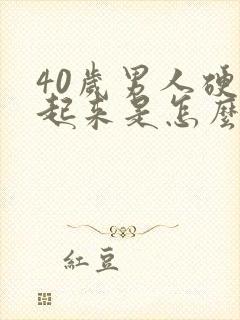 40歲男人硬
起來是怎麼
紅豆